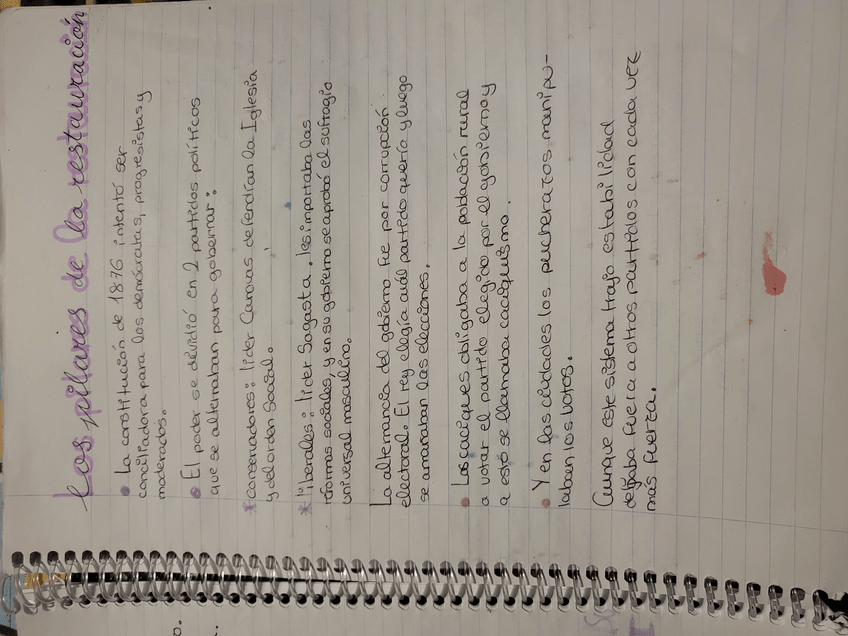 Los pilares de la restauración
La constitución de 1876 intentó ser
conciliadora para los demócratas, progresistas y
moderados.
El poder se dividió en 2 partidos políticos
que se alternaban para gobernar:
*conservadores: lider Canovas defendían la Iglesia
y del orden Social.
*liberales: lider Sagasta, les importaba las
reformas sociales, y en su gobierno se aprobó el sufragio
universal masculino.
La alternancia del gobierno fue por corrupción
electoral. El rey elegía cuál partido quería y luego
se amañaban las elecciones.
Los caciques obligaba a la población rural
a votar el partido elegido por el gobierno y
a estó se llamaba caciquismo.
Y en las ciudades los pucherazos, manipu-
laban los votos.
Aunque este sistema trajo estabilidad
dejaba fuera a otros partidos con cada vez
mas fuerza.